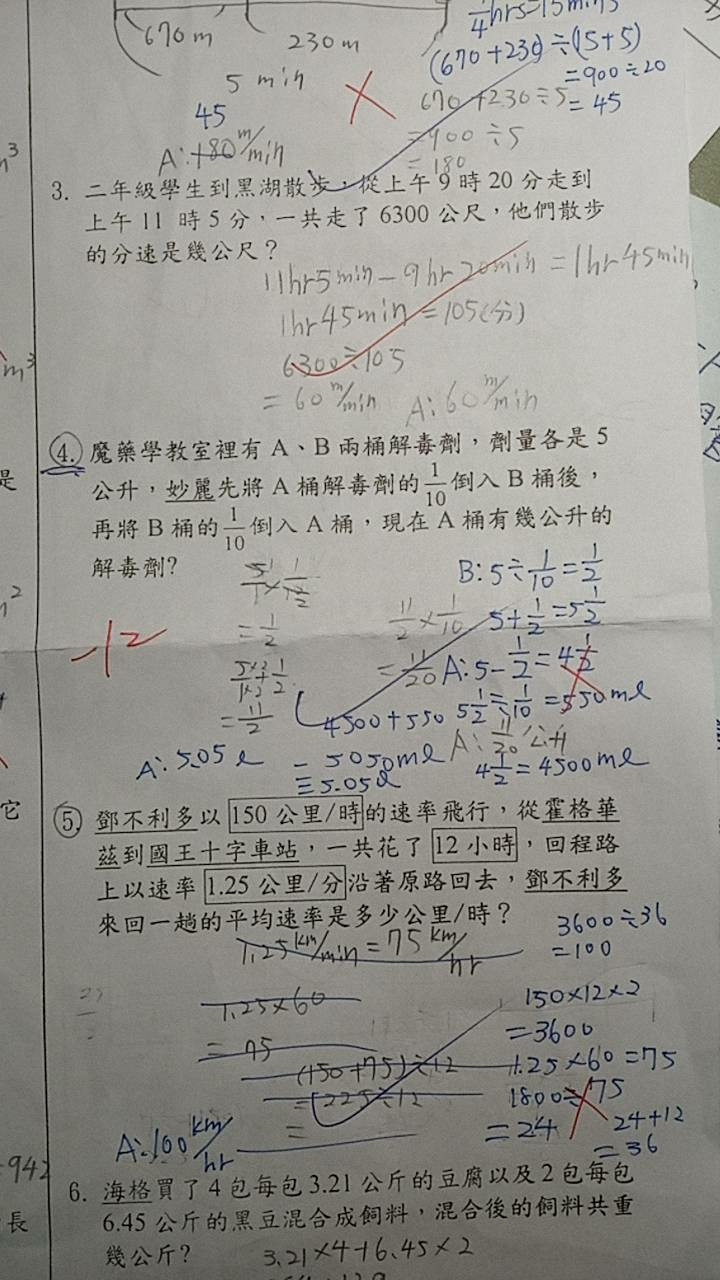 1/4 hrs = 15 mins
670 m 230 m
(670+230) ÷ (15+5)
= 900 ÷ 20
= 45
5 min
670+230÷5
= 900 ÷ 5
= 180
45
A: 180 m/min
3. 二年級學生到黑湖散步，從上午 9 時 20 分走到
上午 11 時 5 分，一共走了 6300 公尺，他們散步
的分速是幾公尺？
11hr5min - 9hr20min = 1hr45min
1hr45min = 105(分)
6300÷105
= 60 m/min A: 60 m/min
4. 魔藥學教室裡有 A、B 兩桶解毒劑，劑量各是 5
公升，妙麗先將 A 桶解毒劑的 1/10 倒入 B 桶後，
再將 B 桶的 1/10 倒入 A 桶，現在 A 桶有幾公升的
解毒劑？
5/1 × 1/10
= 1/2
= 11/2
11/2 × 1/10
= 11/20
B: 5÷1/10 = 1/2
5+1/2 = 5 1/2
A: 5-1/2 = 4 1/2
5 1/2 ÷ 1/10 = 550ml
4 1/2 = 4500ml
-12
4500+550
= 5050ml
= 5.05l
A: 11/20 公升
A: 5.05 l
5. 鄧不利多以 150 公里/時 的速率飛行，從霍格華
茲到國王十字車站，一共花了 12 小時，回程路
上以速率 1.25 公里/分 沿著原路回去，鄧不利多
來回一趟的平均速率是多少公里/時？
1.25 km/min = 75 km/hr
1.25×60
= 75
(150+75)÷12
= 225÷12
=
3600÷36
= 100
150×12×2
= 3600
1.25×60 = 75
1800÷75
= 24
24+12
= 36
A: 100 km/hr
6. 海格買了 4 包每包 3.21 公斤的豆腐以及 2 包每包
6.45 公斤的黑豆混合成飼料，混合後的飼料共重
幾公斤？
3.21×4+6.45×2
m³
m³
是
它
942
長